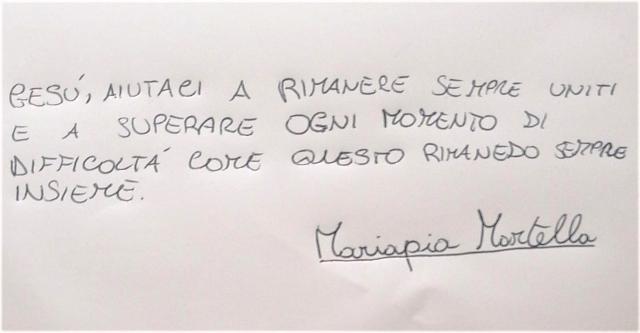 GESÚ, AIUTACI A RIMANERE SEMPRE UNITI
E A SUPERARE OGNI MOMENTO DI
DIFFICOLTÁ COME QUESTO RIMANEDO SEMPRE
INSIEME.
Mariapia Martella